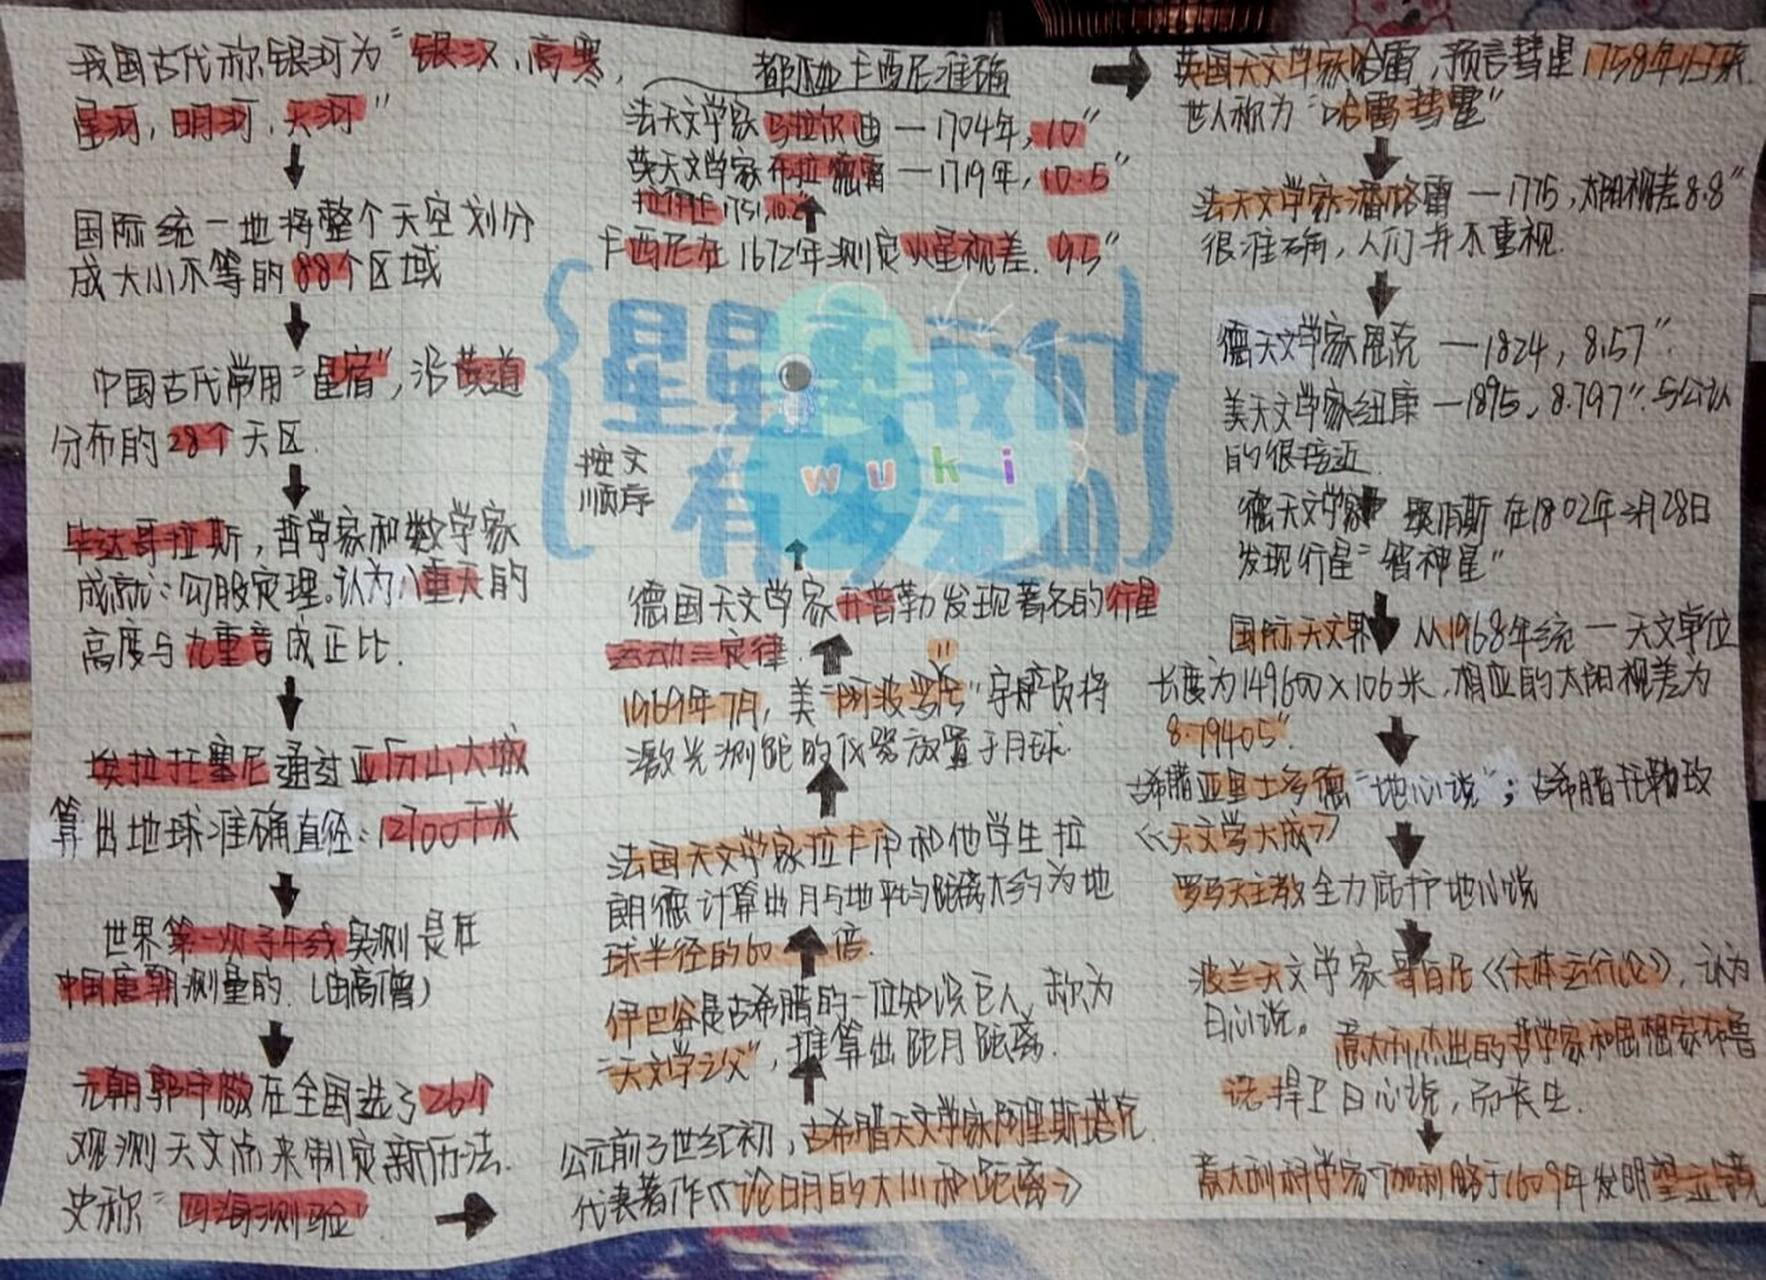 我国古代称银河为"银汉、高寒、
星河，明河，天河"
国际统一地将整个天空划分
成大小不等的88个区域
中国古代常用"星宿"，沿黄道
分布的28个天区.
毕达哥拉斯，哲学家和数学家
成就：勾股定理。认为八重天的
高度与九重音成正比.
埃拉托塞尼通过亚历山大城
算出地球准确直径：12700千米
世界第一次子午线实测是在
中国唐朝测量的.（由高僧）
元朝郭守敬在全国选了26个
观测天文点来制定新历法.
史称"四海测验"
公元前3世纪初，古希腊天文学家阿里斯塔克
代表著作《论日月的大小和距离》
伊巴谷是古希腊的一位知识巨人，称为
"天文学之父"，推算出距月距离.
法国天文学家拉卡伊和他学生拉
朗德计算出月与地平均距离大约为地
球半径的60倍.
1969年7月，美"阿波罗11"宇航员将
激光测距的仪器放置于月球.
德国天文学家开普勒发现著名的行星
运动三定律.
按文
顺序
星星 我们
有 们
wuki
卡西尼在1672年测定火星视差.9.5"
拉 1751,10.2"
英天文学家布拉德雷—1719年,10.5"
法天文学家马拉尔迪—1704年,10"
都 卡西尼准确
英国天文学家哈雷，预言彗星1758年归来.
世人称为"哈雷彗星"
法天文学家潘格雷—1775,太阳视差8.8"
很准确，人们并不重视.
德天文学家恩克—1824, 8.57"
美天文学家纽康—1895, 8.797".与公认
的很接近.
德天文学家 奥伯斯在1802年3月28日
发现行星"智神星"
国际天文界 从1968年统一天文单位
长度为149600×106米,相应的太阳视差为
8.79405".
古希腊亚里士多德"地心说"；古希腊托勒玫
《天文学大成》
罗马天主教全力庇护地心说
波兰天文学家哥白尼《天体运行论》，认为
日心说。
意大利杰出的哲学家和思想家布鲁
诺捍卫日心说，而丧生.
意大利科学家伽利略于1609年发明望远镜